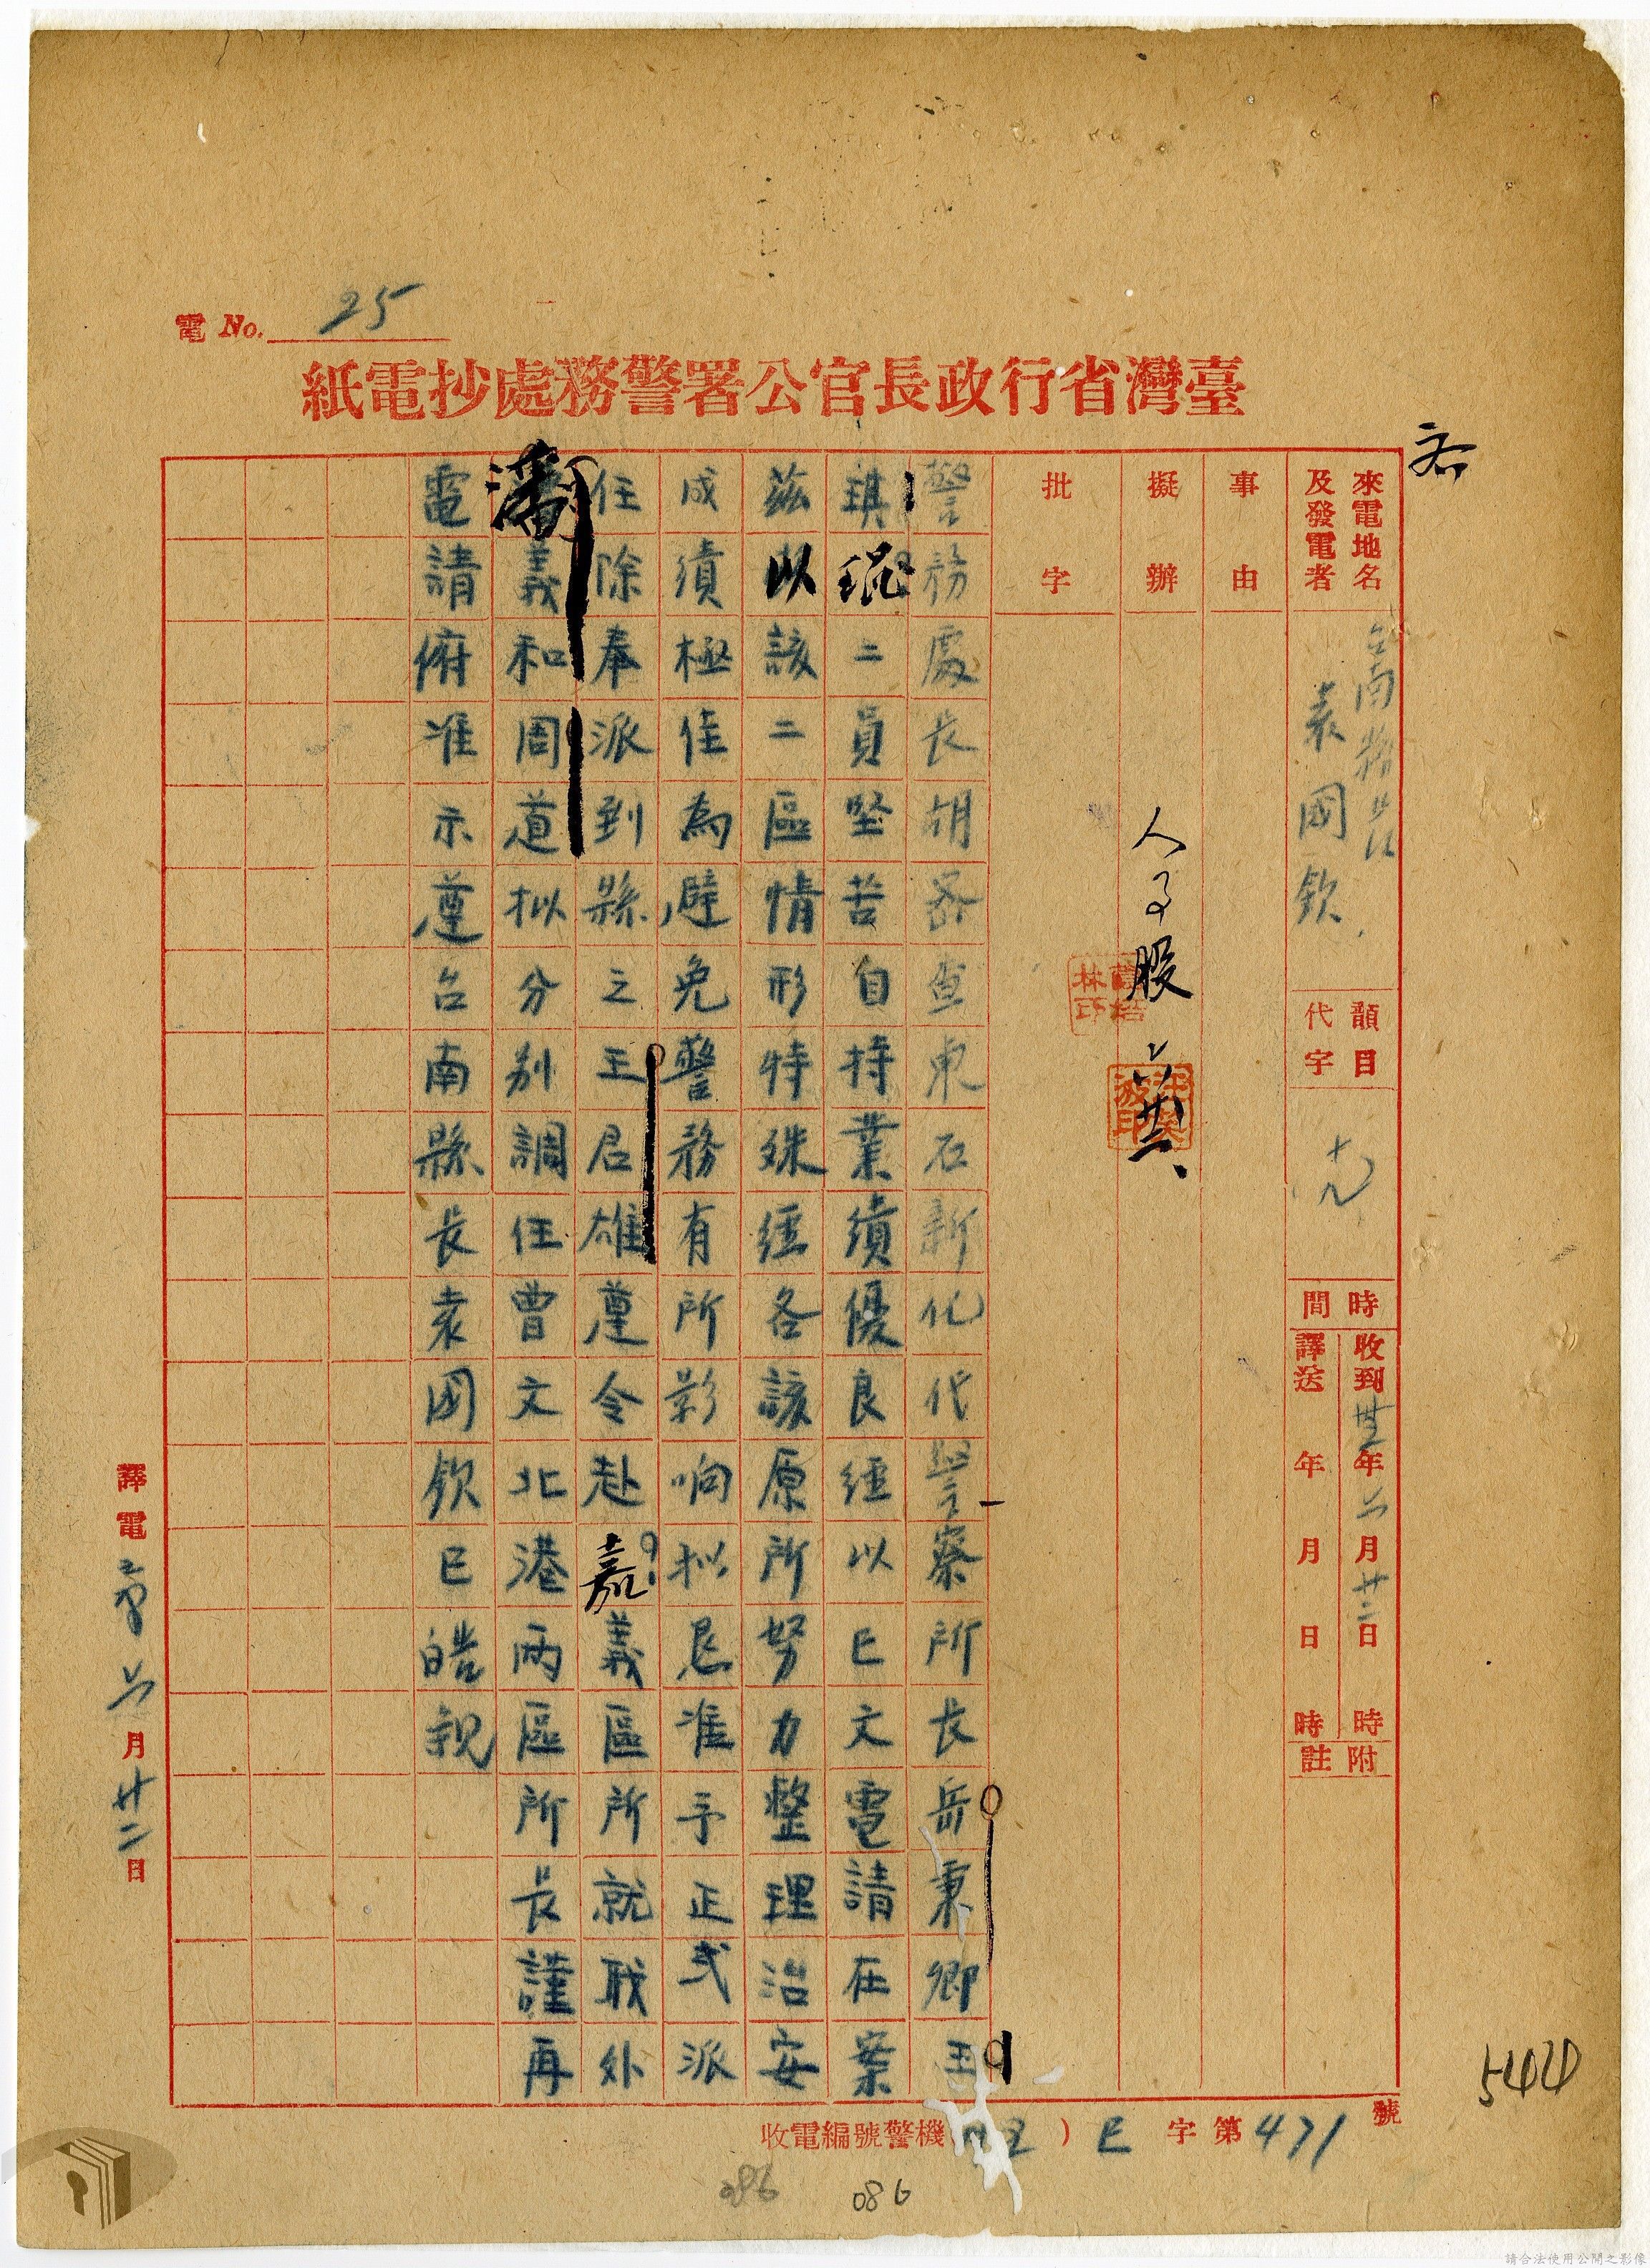 電 No. 25
臺灣省行政長官公署警務處抄電紙
來電地名
及發電者
台南
袁國欽
韻目
代字
時間
收到 卅五年六月廿二日 時
譯送 年 月 日 時
附註
事由
擬辦
人事股
批字
警務處長胡 查東石新化代警察所長岳秉卿王
琪琨二員堅苦自持業績優良經以巳文電請在案
茲以該二區情形特殊經各該原所努力整理治安
成績極佳為避免警務有所影响拟恳准予正式派
任除奉派到縣之王君雄遵令赴嘉義區所就職外
潘義和周道拟分別調任曹文北港兩區所長謹再
電請俯准示遵台南縣長袁国欽巳皓親
譯電 六月廿二日
收電編號警機 ）巳字第471號
544
086
086
請合法使用公開之影像